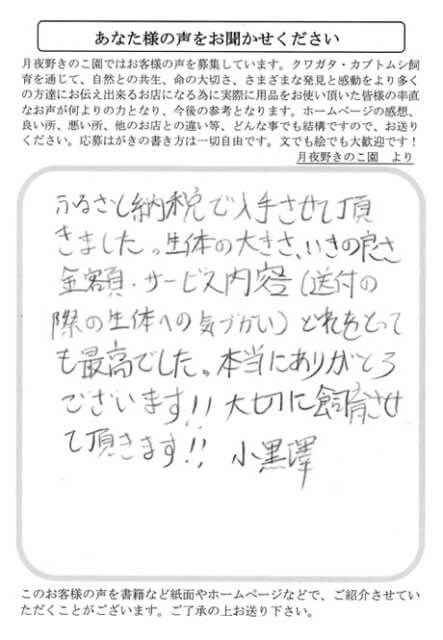 あなた様の声をお聞かせください
月夜野きのこ園ではお客様の声を募集しています。クワガタ・カブトムシ飼
育を通じて、自然との共生、命の大切さ、さまざまな発見と感動をより多く
の方達にお伝え出来るお店になる為に実際に用品をお使い頂いた皆様の率直
なお声が何よりの力となり、今後の参考となります。ホームページの感想、
良い所、悪い所、他のお店との違い等、どんな事でも結構ですので、お送り
ください。応募はがきの書き方は一切自由です。文でも絵でも大歓迎です！
月夜野きのこ園　より
ふるさと納税で入手させて頂
きました。生体の大きさ、いきの良さ
金額・サービス内容（送付の
際の生体への気づかい）どれをとって
も最高でした。本当にありがとう
ございます!! 大切に飼育させ
て頂きます!! 小黒澤
このお客様の声を書籍など紙面やホームページなどで、ご紹介させてい
ただくことがございます。ご了承の上お送り下さい。